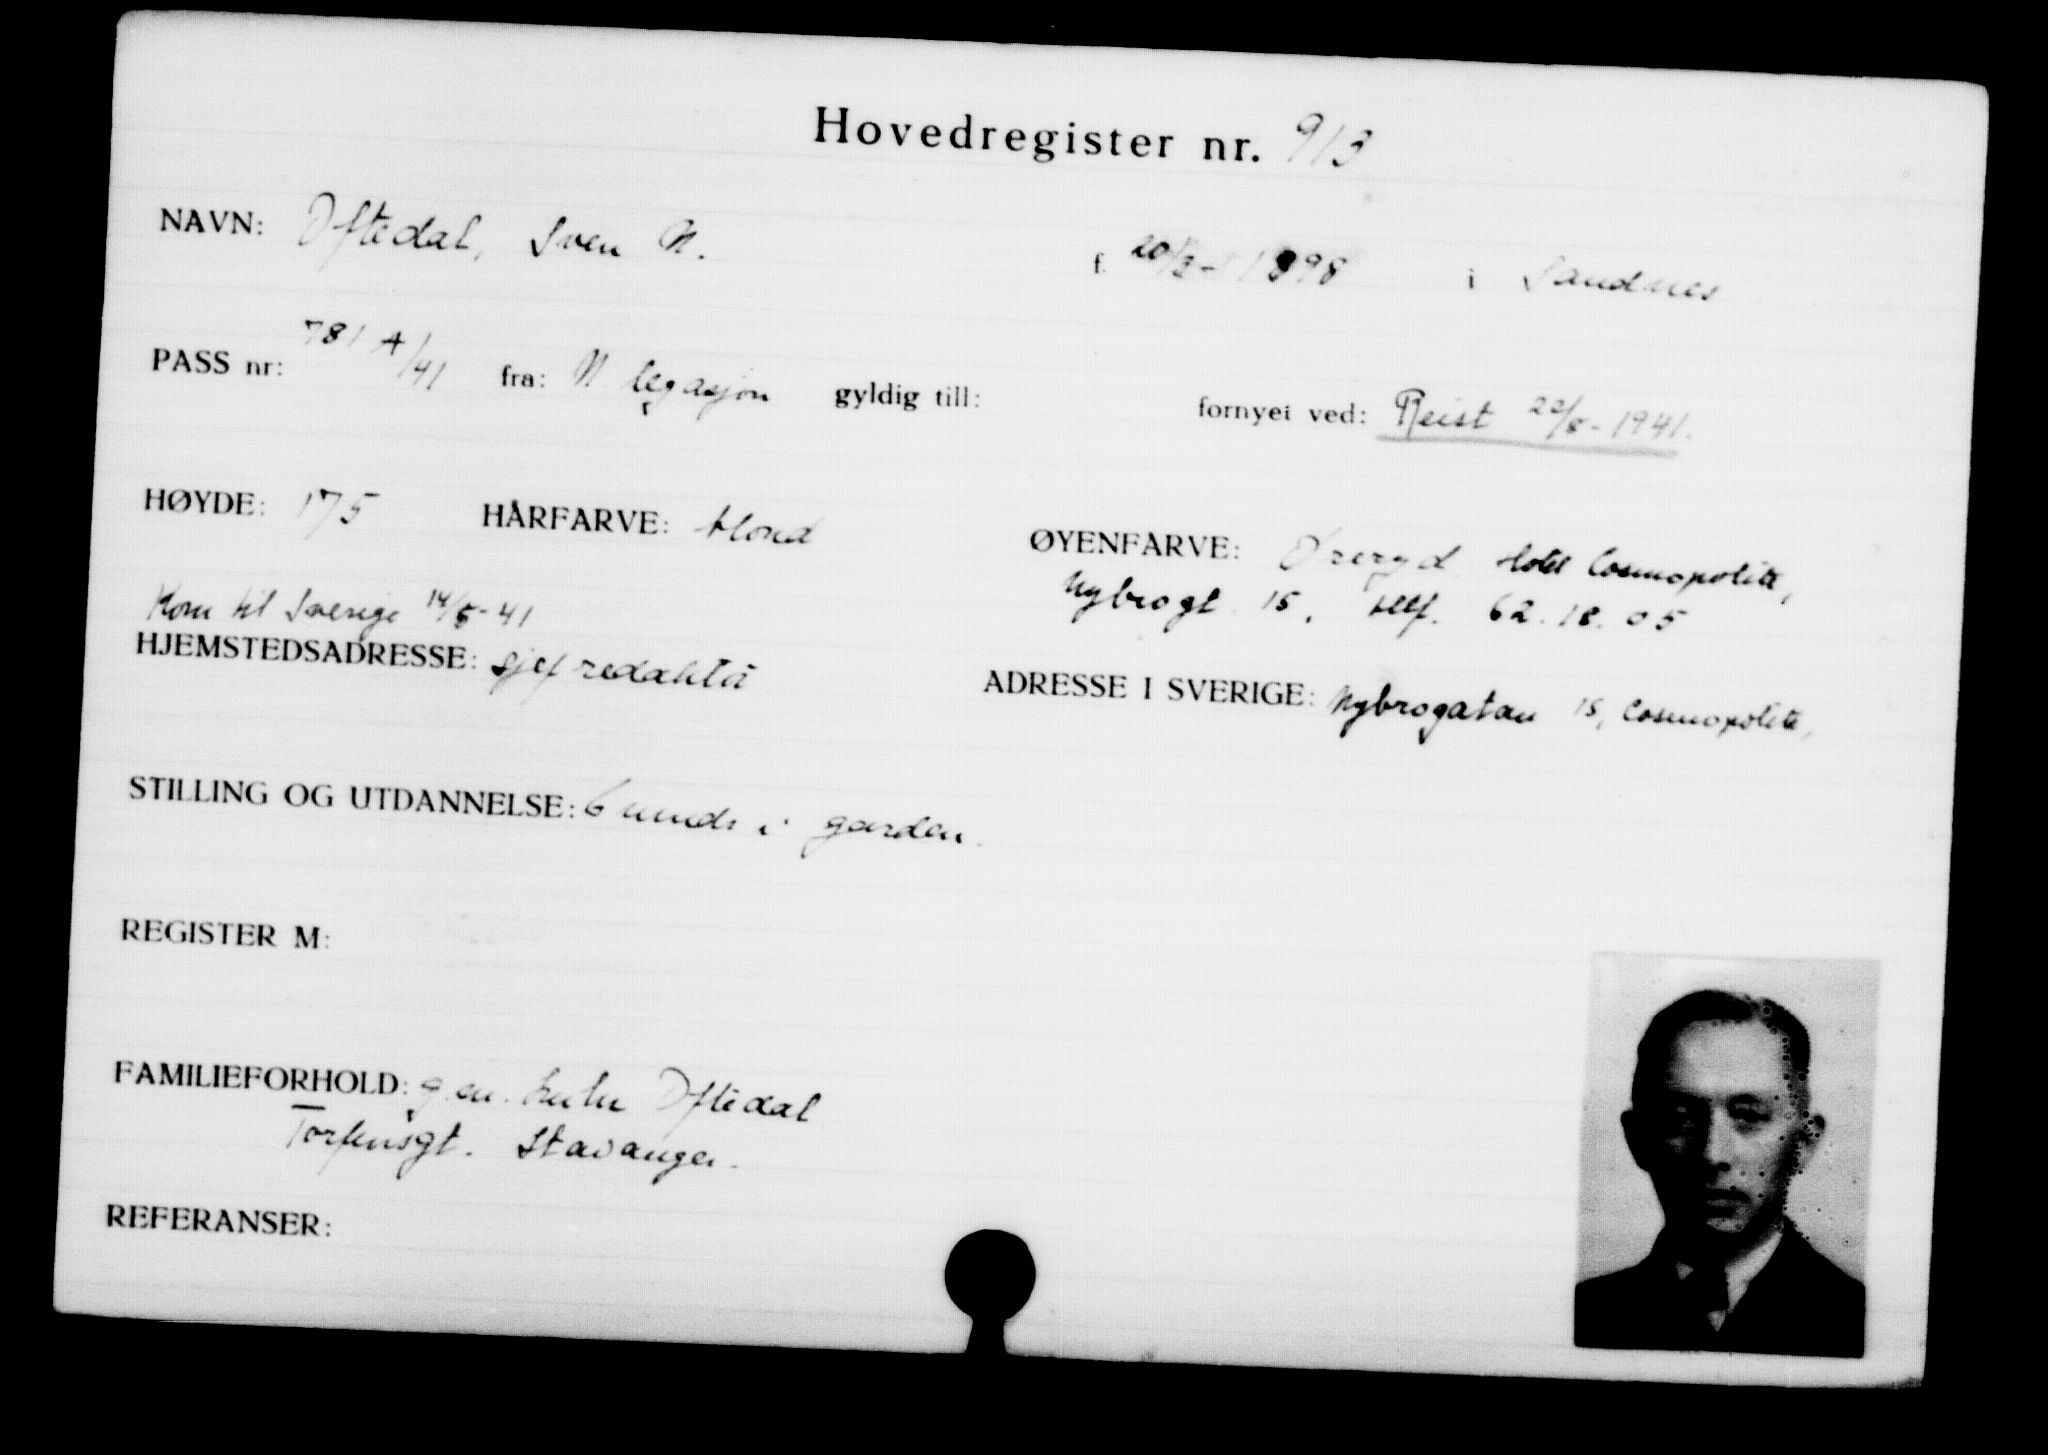 Hovedregister nr. 913
NAVN: Oftedal, Sven N. f. 20/3-1898 i Sandnes
PASS nr: 781 A/41 fra: N. legasjon gyldig till: fornyet ved: Reist 22/8-1941.
HØYDE: 175 HÅRFARVE: blond ØYENFARVE: Øreryd Hotel Cosmopolite,
Nybrogt. 15, telf. 62.18.05
Kom til Sverige 14/5-41
HJEMSTEDSADRESSE: sjefredaktør ADRESSE I SVERIGE: Nybrogatan 15, Cosmopolite,
STILLING OG UTDANNELSE: 6 mndr i garden.
REGISTER M:
FAMILIEFORHOLD: g.m. Oftedal
Stavanger.
REFERANSER: